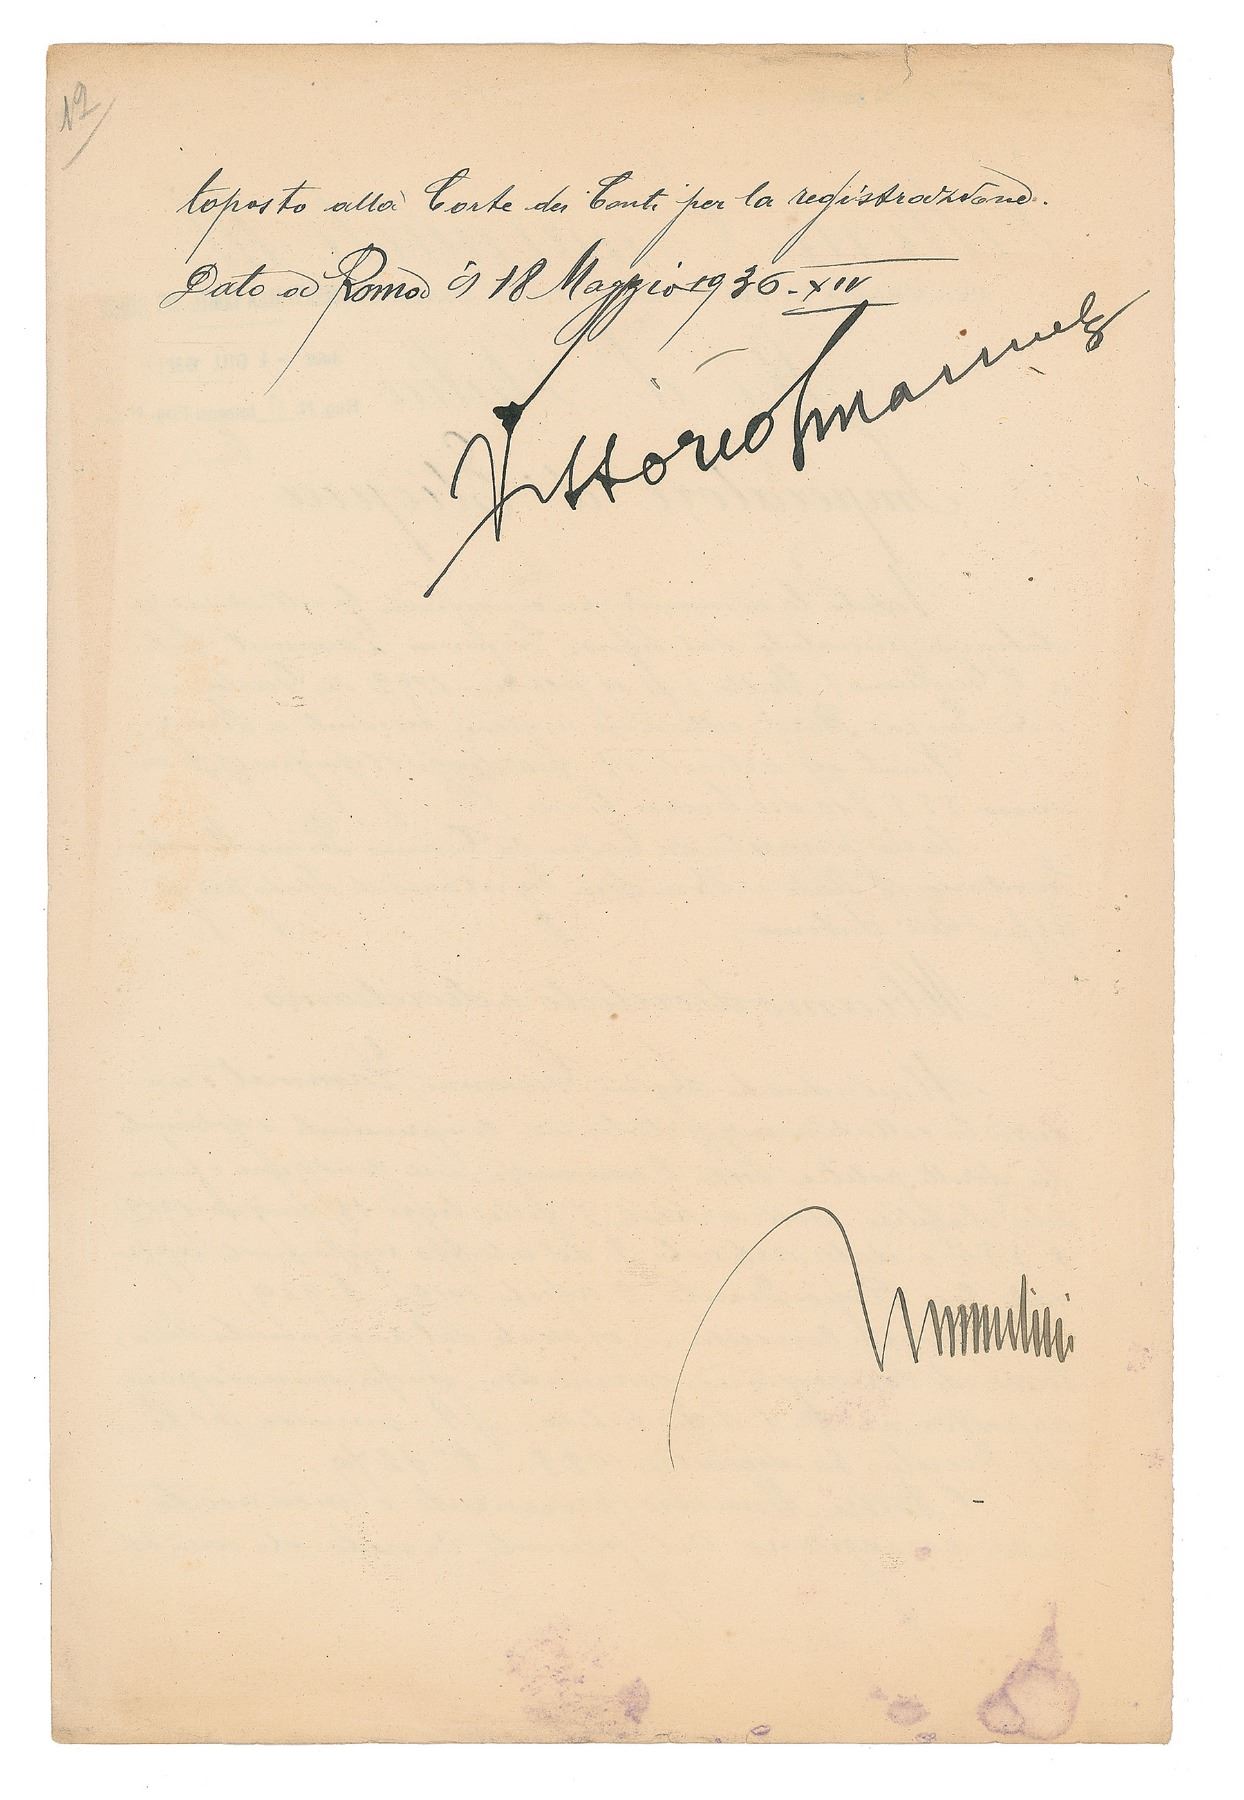 12
toposto alla Corte dei Conti per la registrazione.
Dato a Roma il 18 Maggio 1936-XIV
Vittorio Emanuele
Mussolini